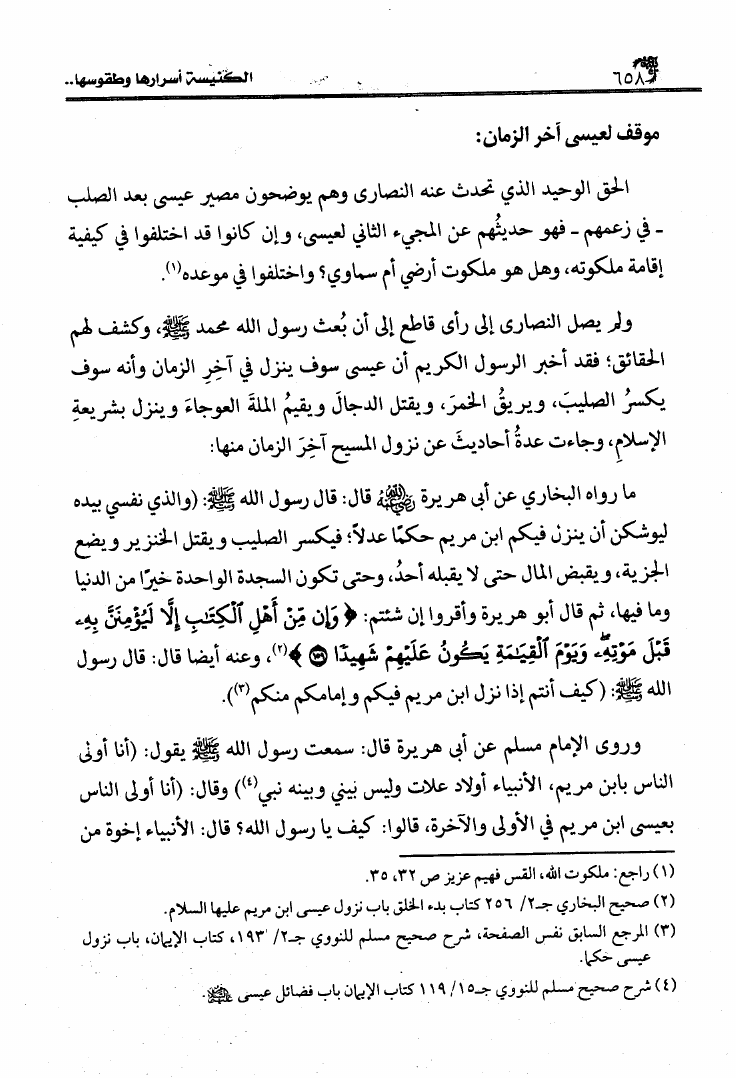 ٦٥٨
الكنيسة أسرارها وطقوسها..
موقف لعيسى آخر الزمان:
الحق الوحيد الذي تحدث عنه النصارى وهم يوضحون مصير عيسى بعد الصلب
ـ في زعمهم ـ فهو حديثُهم عن المجيء الثاني لعيسى، وإن كانوا قد اختلفوا في كيفية
إقامة ملكوته، وهل هو ملكوت أرضي أم سماوي؟ واختلفوا في موعده(١).
ولم يصل النصارى إلى رأى قاطع إلى أن بُعث رسول الله محمد ﷺ، وكشف لهم
الحقائق؛ فقد أخبر الرسول الكريم أن عيسى سوف ينزل في آخِرِ الزمان وأنه سوف
يكسرُ الصليبَ، ويريقُ الخمرَ، ويقتل الدجالَ ويقيمُ الملةَ العوجاءَ وينزل بشريعةِ
الإسلامِ، وجاءت عدةُ أحاديثَ عن نزول المسيح آخرَ الزمان منها:
ما رواه البخاري عن أبى هريرة رضي الله عنه قال: قال رسول الله ﷺ: (والذي نفسي بيده
ليوشكن أن ينزل فيكم ابن مريم حكمًا عدلاً؛ فيكسر الصليب ويقتل الخنزير ويضع
الجزية، ويقبض المال حتى لا يقبله أحدُ، وحتى تكون السجدة الواحدة خيرًا من الدنيا
وما فيها، ثم قال أبو هريرة وأقروا إن شئتم: ﴿ وَإِن مِّنْ أَهْلِ ٱلْكِتَٰبِ إِلَّا لَيُؤْمِنَنَّ بِهِۦ
قَبْلَ مَوْتِهِۦ ۖ وَيَوْمَ ٱلْقِيَٰمَةِ يَكُونُ عَلَيْهِمْ شَهِيدًا ﴾(٢)، وعنه أيضا قال: قال رسول
الله ﷺ: (كيف أنتم إذا نزل ابن مريم فيكم وإمامكم منكم(٣)).
وروى الإمام مسلم عن أبى هريرة قال: سمعت رسول الله ﷺ يقول: (أنا أولى
الناس بابن مريم، الأنبياء أولاد علات وليس بيني وبينه نبي(٤)) وقال: (أنا أولى الناس
بعيسى ابن مريم في الأولى والآخرة، قالوا: كيف يا رسول الله؟ قال: الأنبياء إخوة من
(١) راجع: ملكوت الله، القس فهيم عزيز ص ٣٢، ٣٥.
(٢) صحيح البخاري جـ٢/ ٢٥٦ كتاب بدء الخلق باب نزول عيسى ابن مريم عليها السلام.
(٣) المرجع السابق نفس الصفحة، شرح صحيح مسلم للنووي جـ٢/ ١٩٣، كتاب الإيمان، باب نزول
عيسى حكما.
(٤) شرح صحيح مسلم للنووي جـ١٥/ ١١٩ كتاب الإيمان باب فضائل عيسى